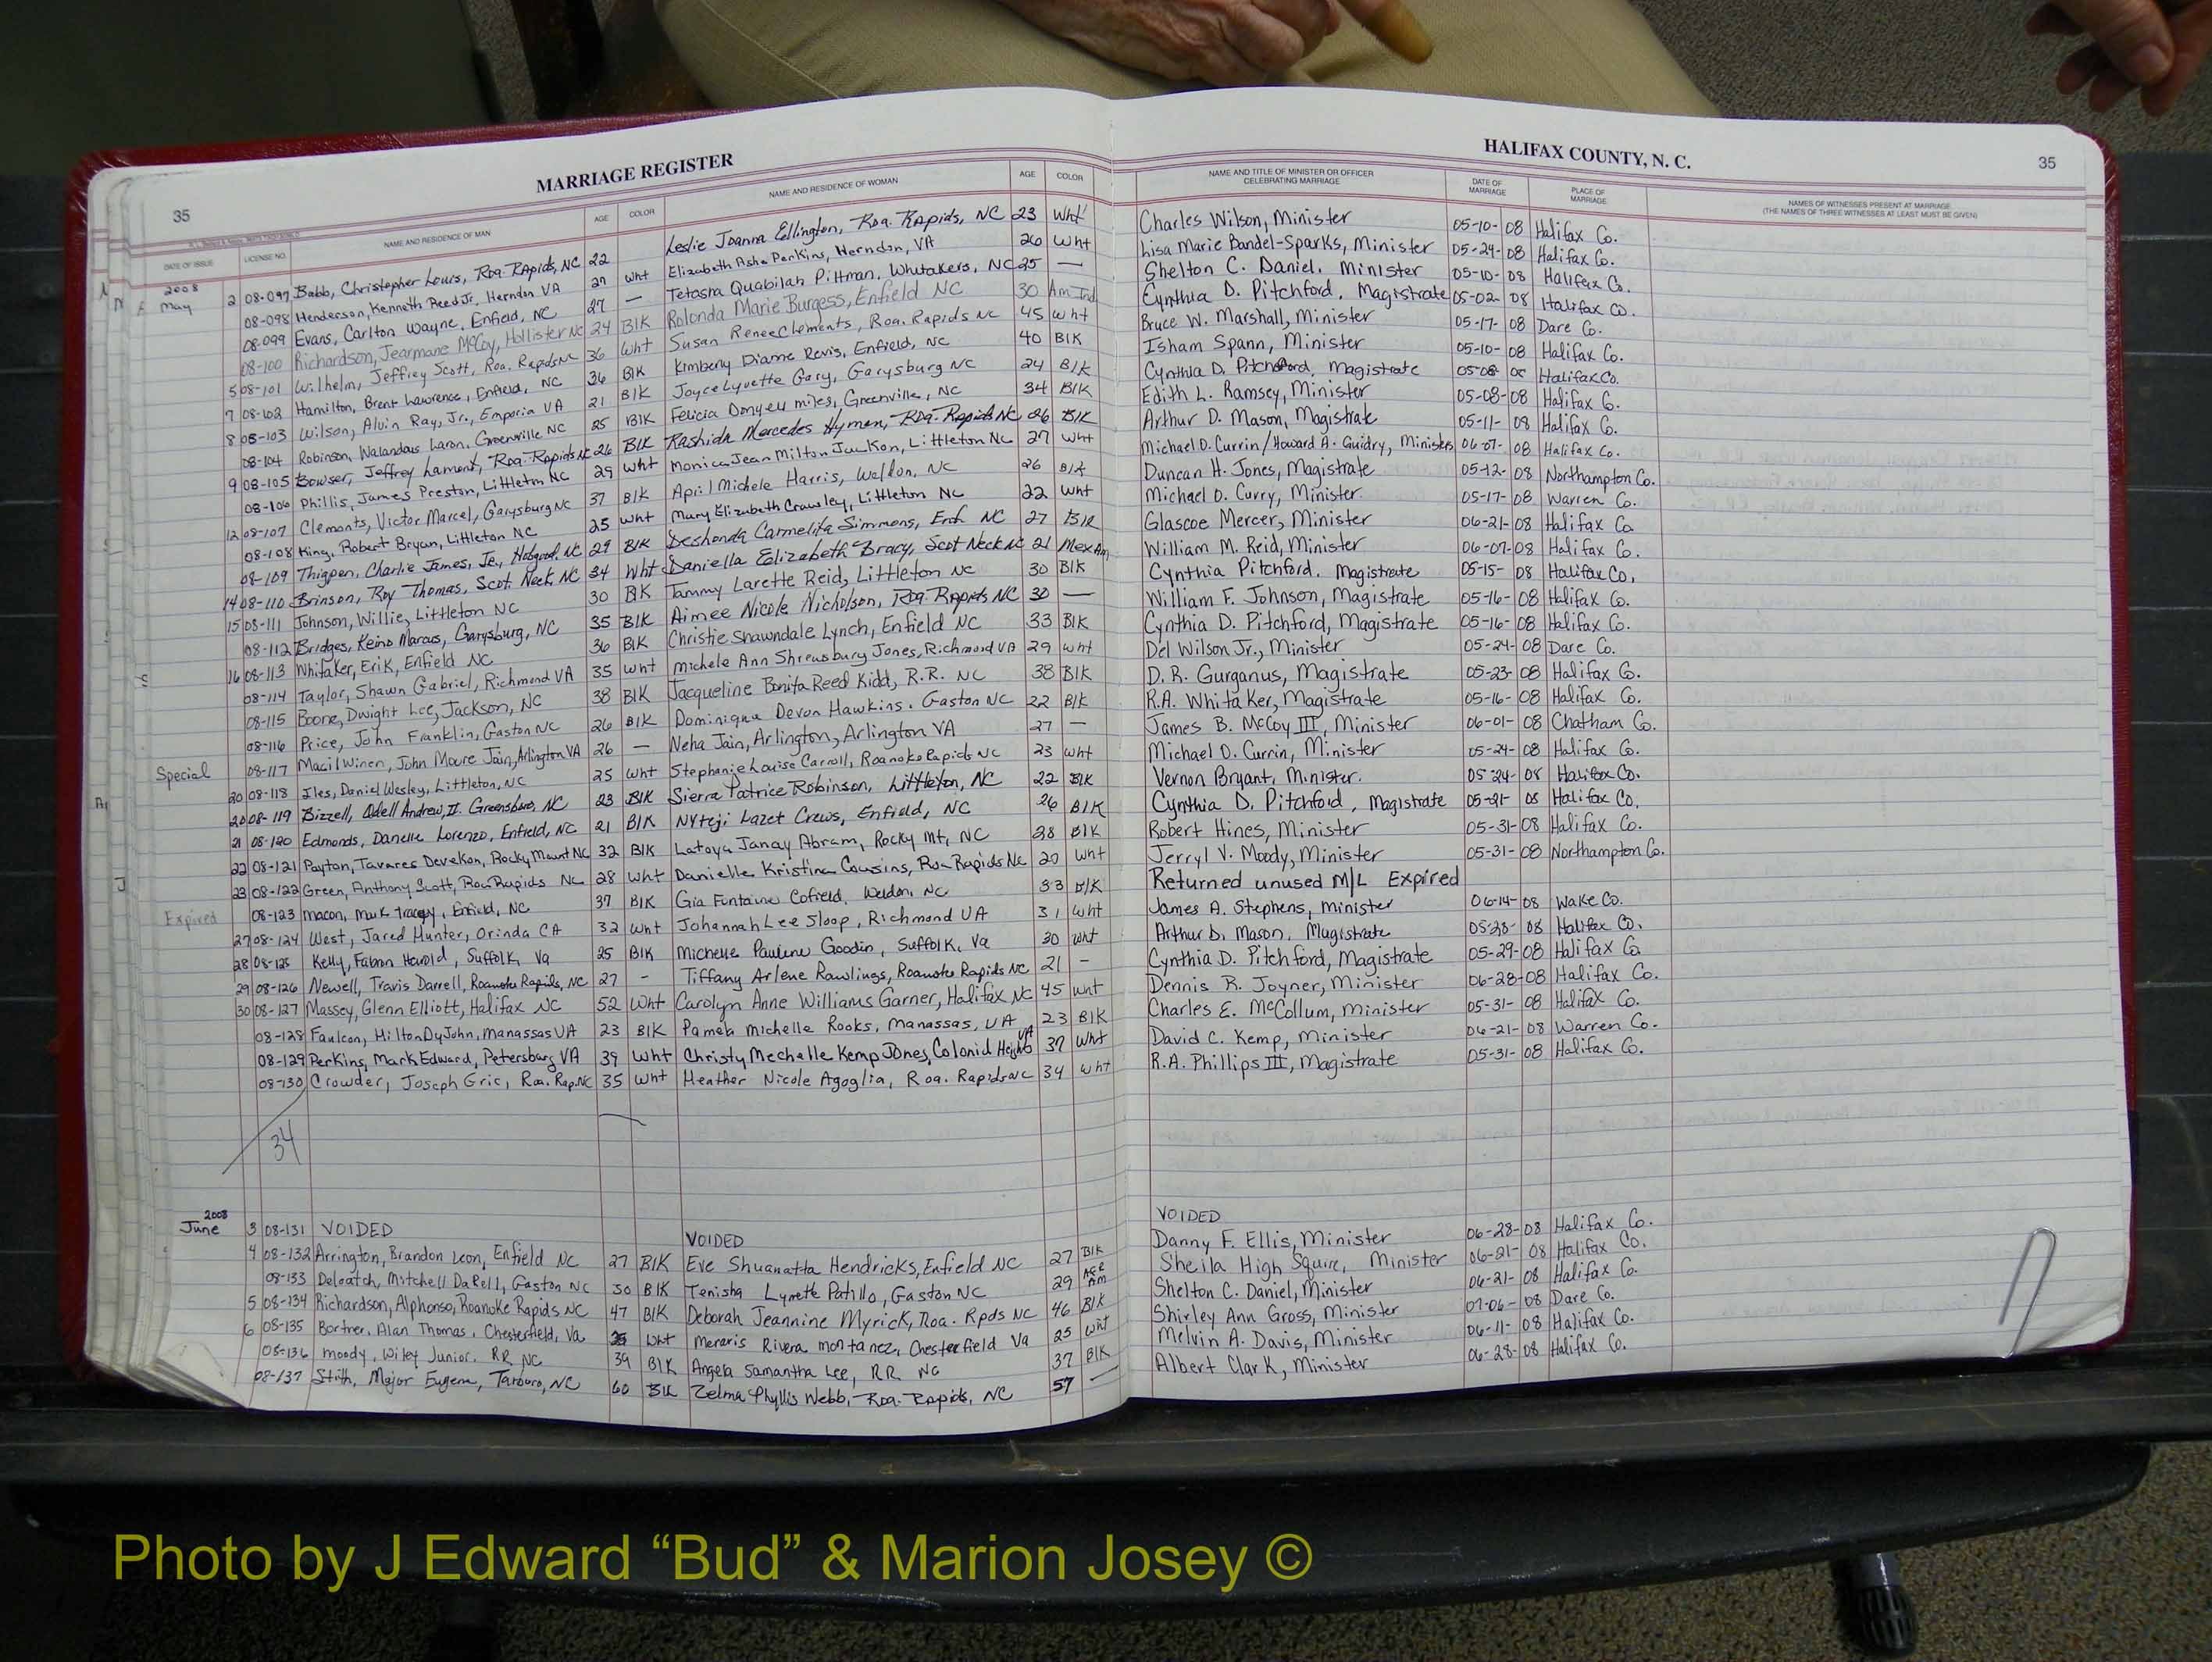 MARRIAGE REGISTER
HALIFAX COUNTY, N. C.
35
35
DATE OF ISSUE LICENSE NO. NAME AND RESIDENCE OF MAN AGE COLOR NAME AND RESIDENCE OF WOMAN AGE COLOR NAME AND TITLE OF MINISTER OR OFFICER CELEBRATING MARRIAGE DATE OF MARRIAGE PLACE OF MARRIAGE NAMES OF WITNESSES PRESENT AT MARRIAGE (THE NAMES OF THREE WITNESSES AT LEAST MUST BE GIVEN)
2008
May 2 08-097 Babb, Christopher Louis, Roa. Rapids, NC 22 Leslie Joanna Ellington, Roa. Rapids, NC 23 Wht Charles Wilson, Minister 05-10-08 Halifax Co.
08-098 Henderson, Kenneth Reed Jr, Herndon VA 29 Wht Elizabeth Ashe Perkins, Herndon, VA 26 Wht Lisa Marie Bandel-Sparks, Minister 05-24-08 Halifax Co.
08-099 Evans, Carlton Wayne, Enfield, NC 27 — Tetasra Quabilah Pittman, Whitakers, NC 25 — Shelton C. Daniel, Minister 05-10-08 Halifax Co.
08-100 Richardson, Jearmane McCoy, Hollister NC 24 Blk Rolonda Marie Burgess, Enfield NC 30 Am Ind Cynthia D. Pitchford, Magistrate 05-02-08 Halifax Co.
5 08-101 Wilhelm, Jeffrey Scott, Roa. Rapids NC 36 Wht Susan Renee Clements, Roa. Rapids NC 45 Wht Bruce W. Marshall, Minister 05-17-08 Dare Co.
7 08-102 Hamilton, Brent Lawrence, Enfield, NC 36 Blk Kimberly Dianne Revis, Enfield, NC 40 Blk Isham Spann, Minister 05-10-08 Halifax Co.
8 08-103 Wilson, Alvin Ray, Jr., Emporia VA 21 Blk Joyce Lyvette Gary, Garysburg NC 24 Blk Cynthia D. Pitchford, Magistrate 05-08 Halifax Co.
08-104 Robinson, Walandous Laron, Greenville NC 25 Blk Felicia Donyell Miles, Greenville, NC 34 Blk Edith L. Ramsey, Minister 05-08-08 Halifax Co.
9 08-105 Bowser, Jeffrey Lamont, Roa. Rapids NC 26 Blk Rashida Mercedes Hyman, Roa. Rapids NC 26 Blk Arthur D. Mason, Magistrate 05-11-08 Halifax Co.
08-106 Phillis, James Preston, Littleton NC 29 Wht Monica Jean Milton Jackson, Littleton NC 27 Wht Michael D. Currin/Howard A. Guidry, Ministers 06-07-08 Halifax Co.
12 08-107 Clemonts, Victor Marcel, Garysburg NC 37 Blk April Michele Harris, Weldon, NC 26 Blk Duncan H. Jones, Magistrate 05-12-08 Northampton Co.
08-108 King, Robert Bryan, Littleton NC 25 Wht Mary Elizabeth Crawley, Littleton NC 22 Wht Michael D. Curry, Minister 05-17-08 Warren Co.
08-109 Thigpen, Charlie James, Jr., Hobgood, NC 29 Blk Deshonda Carmelita Simmons, Enf. NC 27 Blk Glascoe Mercer, Minister 06-21-08 Halifax Co
14 08-110 Brinson, Roy Thomas, Scot. Neck, NC 34 Wht Daniella Elizabeth Bracy, Scot Neck NC 21 Mex Am William M. Reid, Minister 06-07-08 Halifax Co.
15 08-111 Johnson, Willie, Littleton NC 30 Blk Tammy Larette Reid, Littleton NC 30 Blk Cynthia Pitchford, Magistrate 05-15-08 Halifax Co.
08-112 Bridges, Keino Marcus, Garysburg, NC 35 Blk Aimee Nicole Nicholson, Roa. Rapids NC 30 — William F. Johnson, Magistrate 05-16-08 Halifax Co.
16 08-113 Whitaker, Erik, Enfield NC 36 Blk Christie Shawndale Lynch, Enfield NC 33 Blk Cynthia D. Pitchford, Magistrate 05-16-08 Halifax Co.
08-114 Taylor, Shawn Gabriel, Richmond VA 35 Wht Michele Ann Shrewsbury Jones, Richmond VA 29 Wht Del Wilson Jr., Minister 05-24-08 Dare Co.
08-115 Boone, Dwight Lee, Jackson, NC 38 Blk Jacqueline Bonita Reed Kidd, R.R. NC 38 Blk D.R. Gurganus, Magistrate 05-23-08 Halifax Co.
08-116 Price, John Franklin, Gaston NC 26 Blk Dominique Devon Hawkins, Gaston NC 22 Blk R.A. Whitaker, Magistrate 05-16-08 Halifax Co.
Special 08-117 Macilwinen, John Moore Jain, Arlington VA 26 — Neha Jain, Arlington, Arlington VA 27 — James B. McCoy III, Minister 06-01-08 Chatham Co.
20 08-118 Iles, Daniel Wesley, Littleton, NC 25 Wht Stephanie Louise Carroll, Roanoke Rapids NC 23 Wht Michael D. Currin, Minister 05-24-08 Halifax Co.
20 08-119 Bizzell, Odell Andrew, II, Greensboro, NC 23 Blk Sierra Patrice Robinson, Littleton, NC 22 Blk Vernon Bryant, Minister. 05-24-08 Halifax Co.
21 08-120 Edmonds, Danelle Lorenzo, Enfield, NC 21 Blk Nyteji Lazet Crews, Enfield, NC 26 Blk Cynthia D. Pitchford, Magistrate 05-21-08 Halifax Co.
22 08-121 Payton, Tavares Develkon, Rocky Mount NC 32 Blk Latoya Janay Abram, Rocky Mt, NC 28 Blk Robert Hines, Minister 05-31-08 Halifax Co.
23 08-122 Green, Anthony Scott, Roa Rapids NC 28 Wht Danielle Kristina Cousins, Roa Rapids NC 20 Wht Jerryl V. Moody, Minister 05-31-08 Northampton Co.
Expired 08-123 Macon, Mark Tracey, Enfield, NC 37 Blk Gia Fontaine Cofield, Weldon, NC 33 Blk Returned unused M/L Expired
27 08-124 West, Jared Hunter, Orinda CA 32 Wht Johannah Lee Sloop, Richmond VA 31 Wht James A. Stephens, Minister 06-14-08 Wake Co.
28 08-125 Kelly, Fabian Harold, Suffolk, Va 25 Blk Michelle Paulene Goodin, Suffolk, Va 30 Wht Arthur D. Mason, Magistrate 05-28-08 Halifax Co.
29 08-126 Newell, Travis Darrell, Roanoke Rapids, NC 27 - Tiffany Arlene Rawlings, Roanoke Rapids NC 21 - Cynthia D. Pitchford, Magistrate 05-29-08 Halifax Co
30 08-127 Massey, Glenn Elliott, Halifax NC 52 Wht Carolyn Anne Williams Garner, Halifax NC 45 Wht Dennis R. Joyner, Minister 06-28-08 Halifax Co.
08-128 Faulcon, Hilton DyJohn, Manassas VA 23 Blk Pamela Michelle Rooks, Manassas, VA 23 Blk Charles E. McCollum, Minister 05-31-08 Halifax Co.
08-129 Perkins, Mark Edward, Petersburg VA 39 Wht Christy Mechelle Kemp Jones, Colonial Heights VA 37 Wht David C. Kemp, Minister 06-21-08 Warren Co.
08-130 Crowder, Joseph Gric, Roa. Rap. NC 35 Wht Heather Nicole Agoglia, Roa. Rapids NC 34 Wht R.A. Phillips III, Magistrate 05-31-08 Halifax Co.
34
2008
June 3 08-131 VOIDED VOIDED VOIDED
4 08-132 Arrington, Brandon Leon, Enfield NC 27 Blk Eve Shuanatta Hendricks, Enfield NC 27 Blk Danny F. Ellis, Minister 06-28-08 Halifax Co.
08-133 Deloatch, Mitchell DaRell, Gaston NC 30 Blk Tenisha Lynette Patillo, Gaston NC 29 Sheila High Squire, Minister 06-21-08 Halifax Co.
5 08-134 Richardson, Alphonso, Roanoke Rapids NC 47 Blk Deborah Jeannine Myrick, Roa. Rpds NC 46 Blk Shelton C. Daniel, Minister 06-21-08 Halifax Co.
6 08-135 Bortner, Alan Thomas, Chesterfield, Va Wht Meraris Rivera Montanez, Chesterfield Va 25 Wht Shirley Ann Gross, Minister 07-06-08 Dare Co.
08-136 Moody, Wiley Junior, RR NC 39 Blk Angela Samantha Lee, RR NC 37 Blk Melvin A. Davis, Minister 06-11-08 Halifax Co.
08-137 Stith, Major Eugene, Tarboro, NC 60 Blk Zelma Phyllis Webb, Roa. Rapids, NC 57 — Albert Clark, Minister 06-28-08 Halifax Co.
Photo by J Edward “Bud” & Marion Josey ©